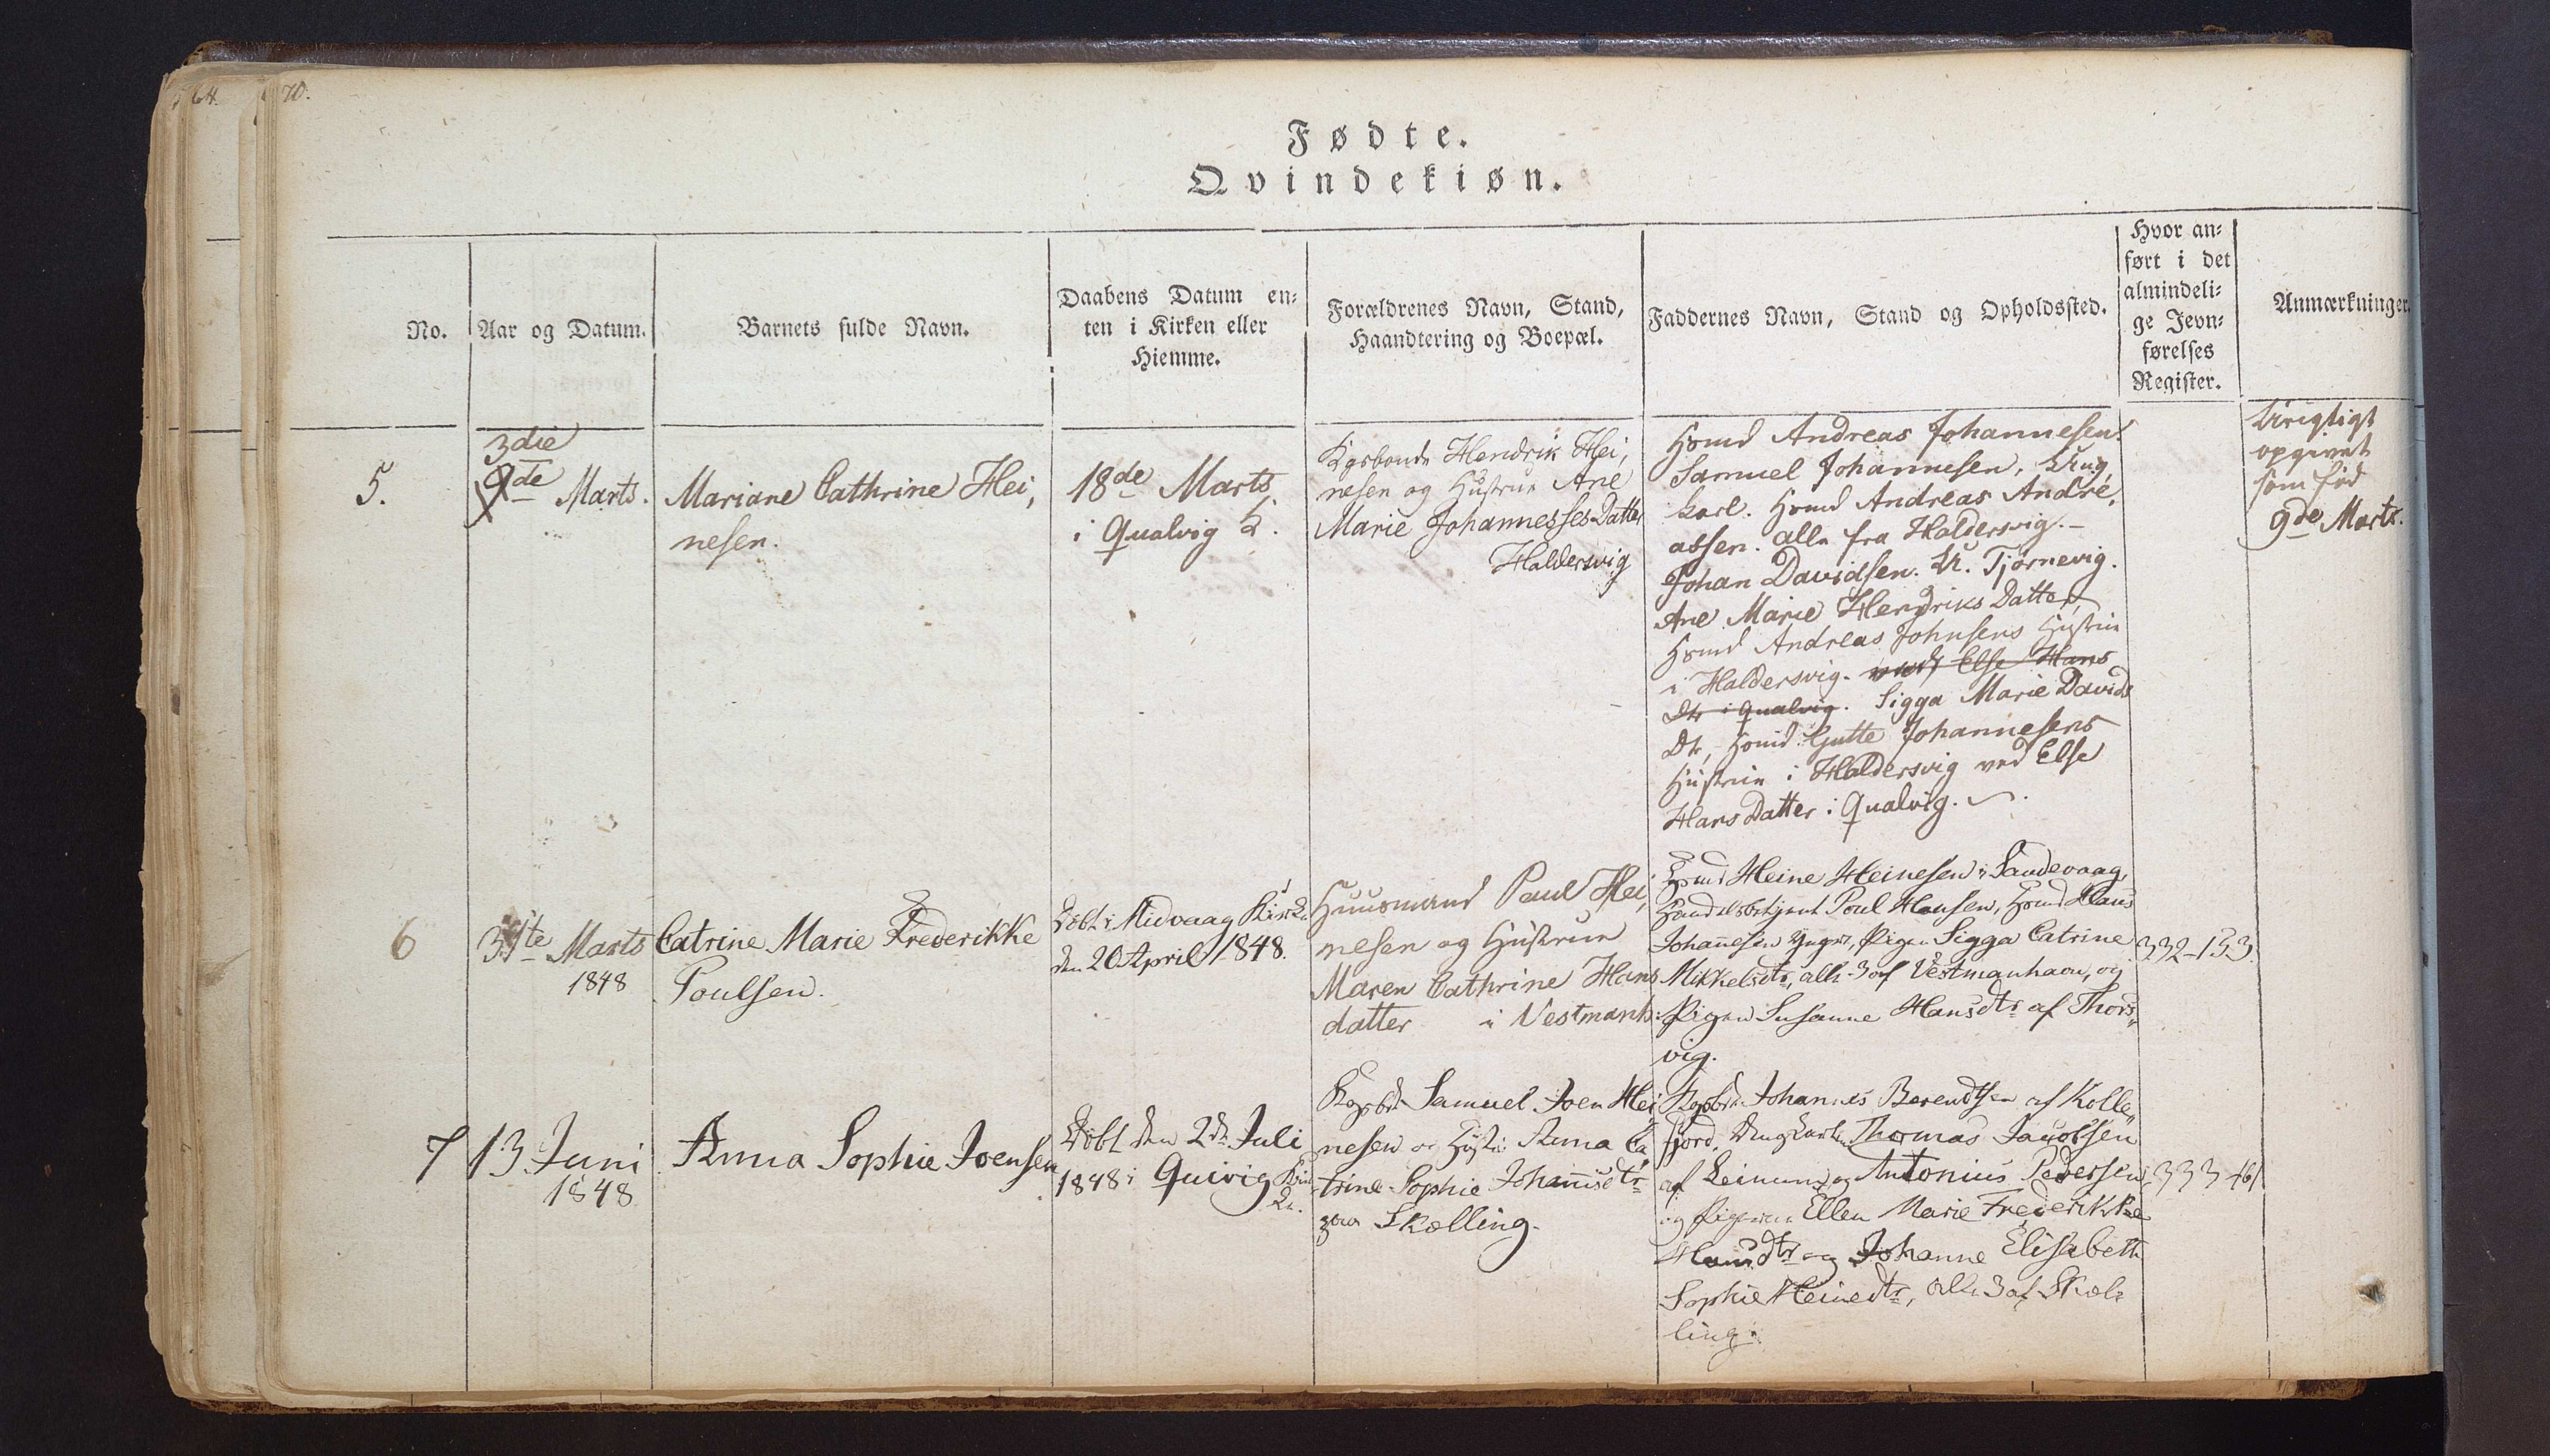 64.
70.
Fødte.
Qvindekiøn.
No.
Aar og Datum.
Barnets fulde Navn.
Daabens Datum en-
ten i Kirken eller
Hiemme.
Forældrenes Navn, Stand,
Haandtering og Boepæl.
Faddernes Navn, Stand og Opholdssted.
Hvor an-
ført i det
almindeli-
ge Jevn-
førelses
Register.
Anmærkninger.
5.
3die
9de Marts.
Mariane Cathrine Hei,
nesen.
18de Marts
i Qualvig K.
Kgsbonde Hendrik Hei,
nesen og Hustrue Ane
Marie JohannessesDatter
Haldersvig
Hsmd Andreas Johannesen.
Samuel Johannesen, Ung,
karl. Hsmd Andreas André,
assen. alle fra Haldersvig.-
Johan Davidsen. U. Tjørnevig.
Ane Marie HendriksDatter,
Hsmd Andreas Johnsens Hustrue
i Haldersvig. ved Else Hans
Dtr i Qualvig. Sigga Marie Davids
Dtr, Hsmd Gutte Johannesens
Hustrue i Haldersvig ved Else
HansDatter i Qualvig.
Urigtigt
opgivet
som fød
9de Marts.
6
31te Marts
1848
Catrine Marie Frederikke
Poulsen.
Døbt i Midvaag Kirke
den 20 April 1848.
Huusmand Paul Hei,
nesen og Hustrue
Maren Cathrine Hans
datter i Vestmanh:
Hsmd Heine Heinesen i Sandevaag,
Handelsbetjent Poul Hansen, Hsmd Hans
Johannesen Yngre, Pigen Sigga Catrine
Mikkelsdtr, alle 3 af Vestmanhavn, og
Pigen Susanne Hansdtr af Thors,
vig.
332-153.
7
13 Juni
1848
Anna Sophie Joensen
Døbt den 2de Juli
1848 i Quivig Kir
ke.
Kgsbd. Samuel Joen Hei
nesen og Hustr: Anna Ca
trine Sophie Johannisdtr
paa Skælling.
Kgsbd. Johannes Berendtsen af Kolle
fjord, Ungkarlene Thomas Jacobsen
af Leinum og Antonius Pedersen
og Pigerne Ellen Marie Frederikke
Hansdtr og Johanne Elisabeth
Sophie Heinedtr, alle 3 af Skæl-
ling.
333-161